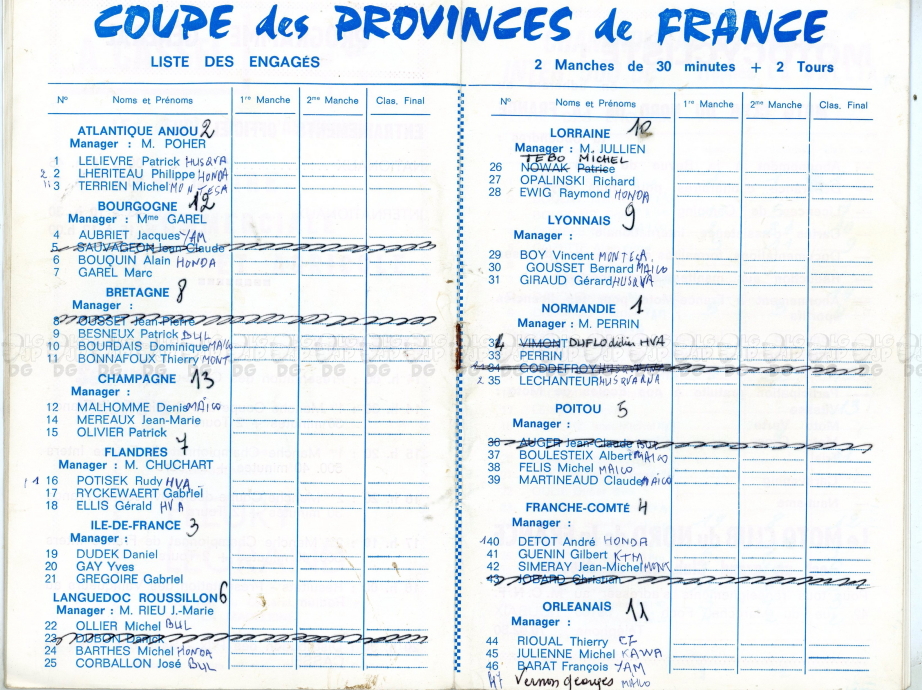 COUPE des PROVINCES de FRANCE
LISTE DES ENGAGÉS
Nº Noms et Prénoms 1re Manche 2me Manche Clas. Final
ATLANTIQUE ANJOU 2
Manager : M. POHER
1 LELIEVRE Patrick HUSQVA
2 2 LHERITEAU Philippe HONDA
3 TERRIEN Michel MONTESA
BOURGOGNE 12
Manager : Mme GAREL
4 AUBRIET Jacques YAM
5 SAUVAGEON Jean-Claude
6 BOUQUIN Alain HONDA
7 GAREL Marc
BRETAGNE 8
Manager :
8 OUSSET Jean-Pierre
9 BESNEUX Patrick BUL
10 BOURDAIS Dominique MAICO
11 BONNAFOUX Thierry MONT
CHAMPAGNE 13
Manager :
12 MALHOMME Denis MAICO
14 MEREAUX Jean-Marie
15 OLIVIER Patrick
FLANDRES 7
Manager : M. CHUCHART
16 POTISEK Rudy HVA
17 RYCKEWAERT Gabriel
18 ELLIS Gérald HVA
ILE-DE-FRANCE 3
Manager :
19 DUDEK Daniel
20 GAY Yves
21 GREGOIRE Gabriel
LANGUEDOC ROUSSILLON 6
Manager : M. RIEU J.-Marie
22 OLLIER Michel BUL
23 DUBON
24 BARTHES Michel HONDA
25 CORBALLON José BUL
2 Manches de 30 minutes + 2 Tours
Nº Noms et Prénoms 1re Manche 2me Manche Clas. Final
LORRAINE 10
Manager : M. JULLIEN
TEBO MICHEL
26 NOWAK Patrice
27 OPALINSKI Richard
28 EWIG Raymond HONDA
LYONNAIS 9
Manager :
29 BOY Vincent MONTESA
30 GOUSSET Bernard MAICO
31 GIRAUD Gérard HUSQVA
NORMANDIE 1
Manager : M. PERRIN
32 VIMONT DUFLO HVA
33 PERRIN
34 CODDEFROY
2 35 LECHANTEUR HUSQVARNA
POITOU 5
Manager :
36 AUGER Jean-Claude BUL
37 BOULESTEIX Albert MAICO
38 FELIS Michel MAICO
39 MARTINEAUD Claude MAICO
FRANCHE-COMTÉ 4
Manager :
140 DETOT André HONDA
41 GUENIN Gilbert KTM
42 SIMERAY Jean-Michel MONT
43 JOBARD Christian
ORLEANAIS 11
Manager :
44 RIOUAL Thierry CZ
45 JULIENNE Michel KAWA
46 BARAT François YAM
47 Vernon georges MAICO